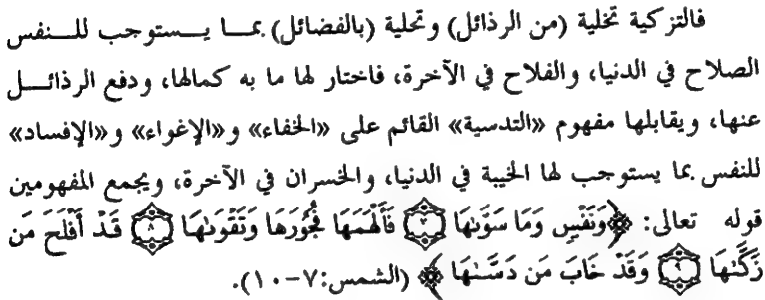 فالتزكية تخلية (من الرذائل) وتحلية (بالفضائل) بما يستوجب للنفس
الصلاح في الدنيا، والفلاح في الآخرة، فاختار لها ما به كمالها، ودفع الرذائل
عنها، ويقابلها مفهوم «التدسية» القائم على «الخفاء» و«الإغواء» و«الإفساد»
للنفس بما يستوجب لها الخيبة في الدنيا، والخسران في الآخرة، ويجمع المفهومين
قوله تعالى: ﴿وَنَفْسٍ وَمَا سَوَّىٰهَا ٧ فَأَلْهَمَهَا فُجُورَهَا وَتَقْوَىٰهَا ٨ قَدْ أَفْلَحَ مَن
زَكَّىٰهَا ٩ وَقَدْ خَابَ مَن دَسَّىٰهَا﴾ (الشمس:٧-١٠).